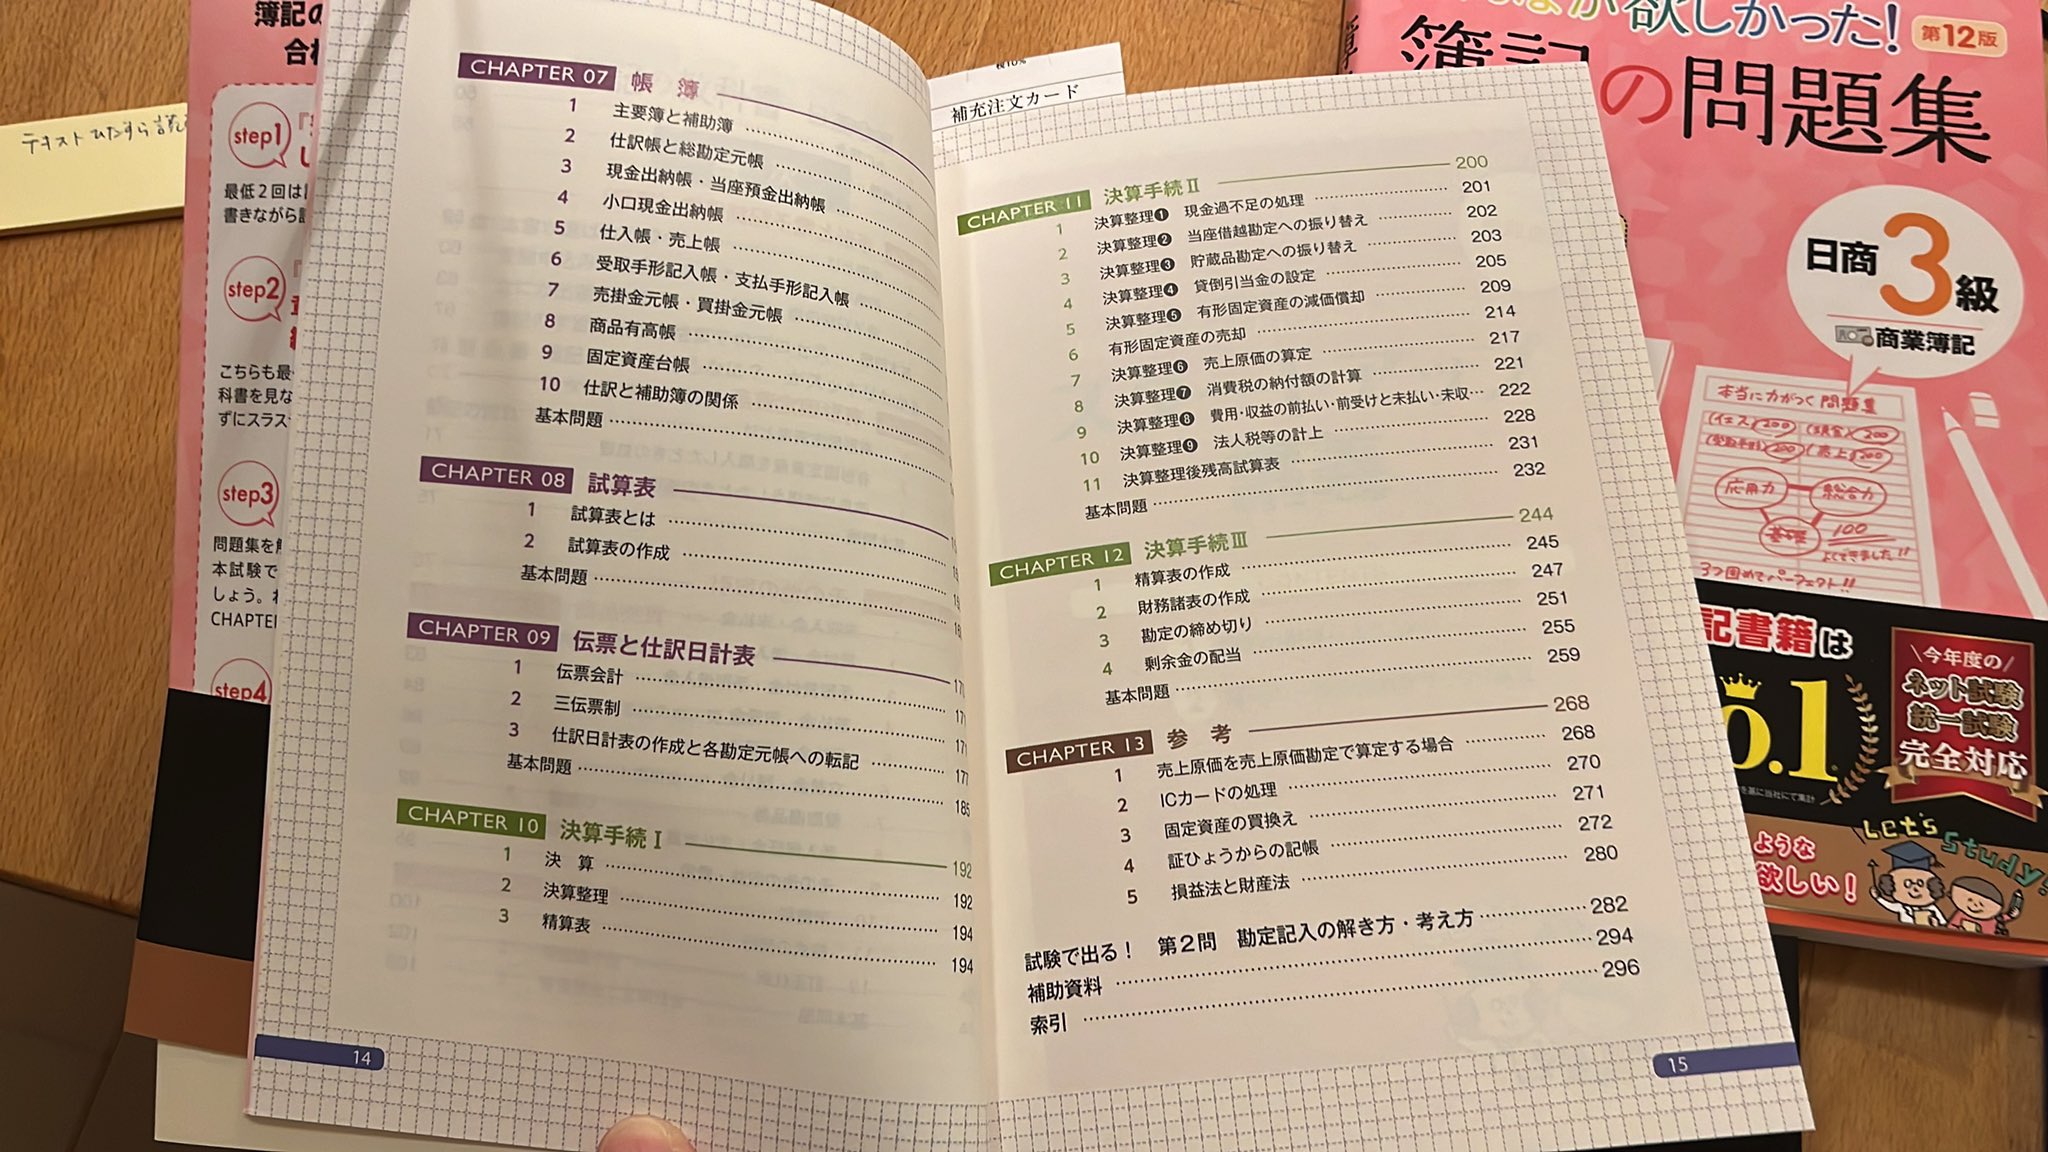 テキストひたすら読
簿記の
合格
step1
最低2回は
書きながら
step2
こちらも最
科書を見な
ずにスラス
step3
問題集を
本試験で
しょう。
CHAPTER
step4
CHAPTER 07 帳 簿
1 主要簿と補助簿
2 仕訳帳と総勘定元帳
3 現金出納帳・当座預金出納帳
4 小口現金出納帳
5 仕入帳・売上帳
6 受取手形記入帳・支払手形記入帳
7 売掛金元帳・買掛金元帳
8 商品有高帳
9 固定資産台帳
10 仕訳と補助簿の関係
基本問題
CHAPTER 08 試算表
1 試算表とは
2 試算表の作成
基本問題
CHAPTER 09 伝票と仕訳日計表
1 伝票会計
2 三伝票制
3 仕訳日計表の作成と各勘定元帳への転記 177
基本問題 185
CHAPTER 10 決算手続Ⅰ 192
1 決 算 192
2 決算整理 194
3 精算表 194
14
補充注文カード
CHAPTER 11 決算手続Ⅱ 200
1 決算整理❶ 現金過不足の処理 201
2 決算整理❷ 当座借越勘定への振り替え 202
3 決算整理❸ 貯蔵品勘定への振り替え 203
4 決算整理❹ 貸倒引当金の設定 205
5 決算整理❺ 有形固定資産の減価償却 209
6 有形固定資産の売却 214
7 決算整理❻ 売上原価の算定 217
8 決算整理❼ 消費税の納付額の計算 221
9 決算整理❽ 費用・収益の前払い・前受けと未払い・未収… 222
10 決算整理❾ 法人税等の計上 228
11 決算整理後残高試算表 231
基本問題 232
CHAPTER 12 決算手続Ⅲ 244
1 精算表の作成 245
2 財務諸表の作成 247
3 勘定の締め切り 251
4 剰余金の配当 255
基本問題 259
CHAPTER 13 参 考 268
1 売上原価を売上原価勘定で算定する場合 268
2 ICカードの処理 270
3 固定資産の買換え 271
4 証ひょうからの記帳 272
5 損益法と財産法 280
試験で出る! 第2問 勘定記入の解き方・考え方 282
補助資料 294
索引 296
15
が欲しかった!
第12版
簿記の問題集
日商3級
商業簿記
本当に力がつく問題集
応用力
総合力
基礎
100
よくできました!!
3つ固めてパーフェクト!!
記書籍は
o.1
\今年度の/
ネット試験
統一試験
完全対応
ような
欲しい!
Let's Study!